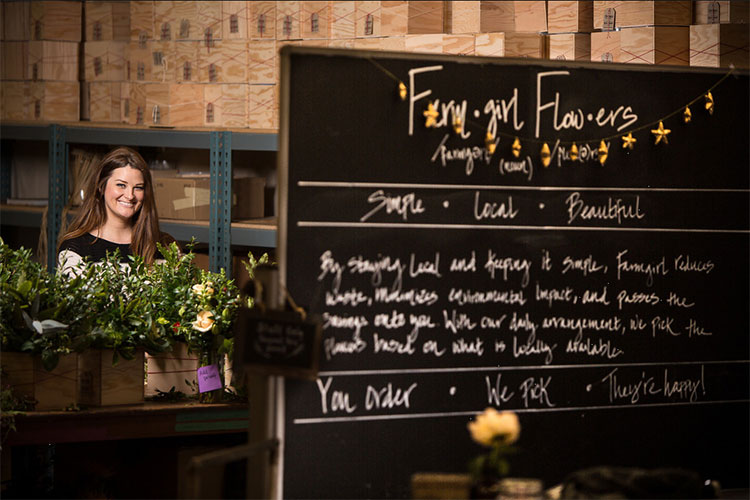 Farm·girl Flow·ers
/farmgərl (noun) /flou(ə)rs
Simple · Local · Beautiful
By staying local and keeping it simple, Farmgirl reduces
waste, minimizes environmental impact, and passes the
savings onto you. With our daily arrangement, we pick the
flowers based on what is locally available.
You order · We Pick · They're happy!